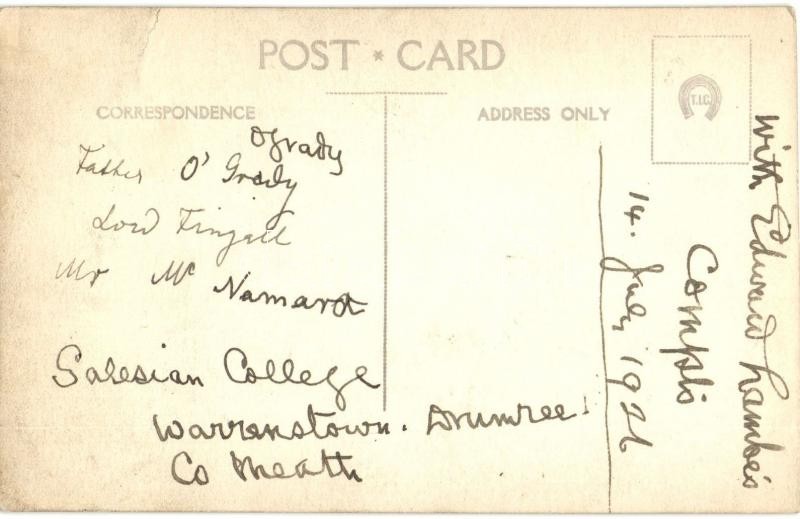 POST * CARD
CORRESPONDENCE
ADDRESS ONLY
T.I.C.
O'Grady
Father O' Grady
Lord Fingall
Mr Mc Namara
Salesian College
Warrenstown. Drumree.
Co Meath
with Edward Lambe's
Complis
14. July 1926